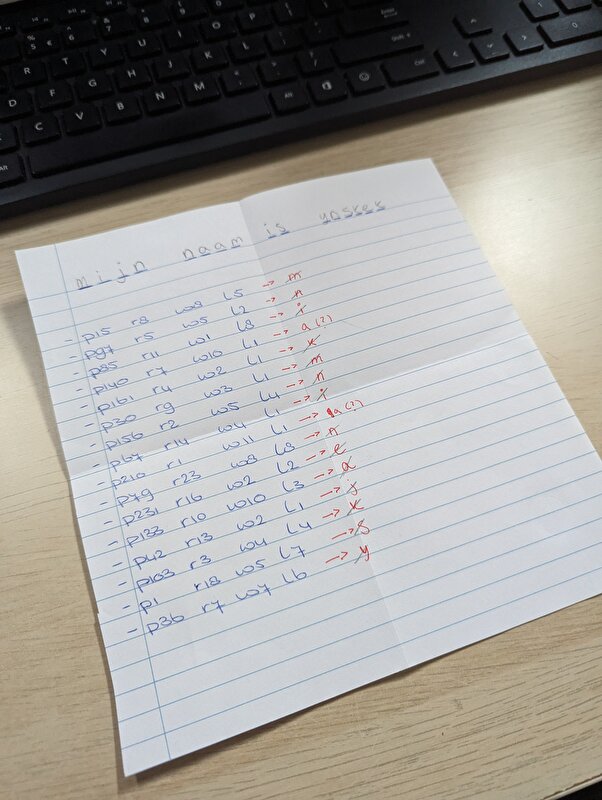 mijn naam is yosker
- p15 r8 w8 L5 → m
- p97 r5 w5 L2 → n
- p85 r11 w1 L8 → i
- p140 r7 w10 L1 → a (?)
- p161 r4 w2 L1 → k
- p30 r9 w3 L1 → m
- p156 r2 w5 L4 → n
- p67 r14 w4 L1 → i
- p210 r1 w11 L1 → a (?)
- p79 r23 w8 L8 → n
- p231 r16 w2 L2 → e
- p133 r10 w10 L3 → a
- p42 r13 w2 L1 → j
- p103 r3 w4 L4 → k
- p1 r18 w5 L7 → s
- p36 r7 w7 L6 → y